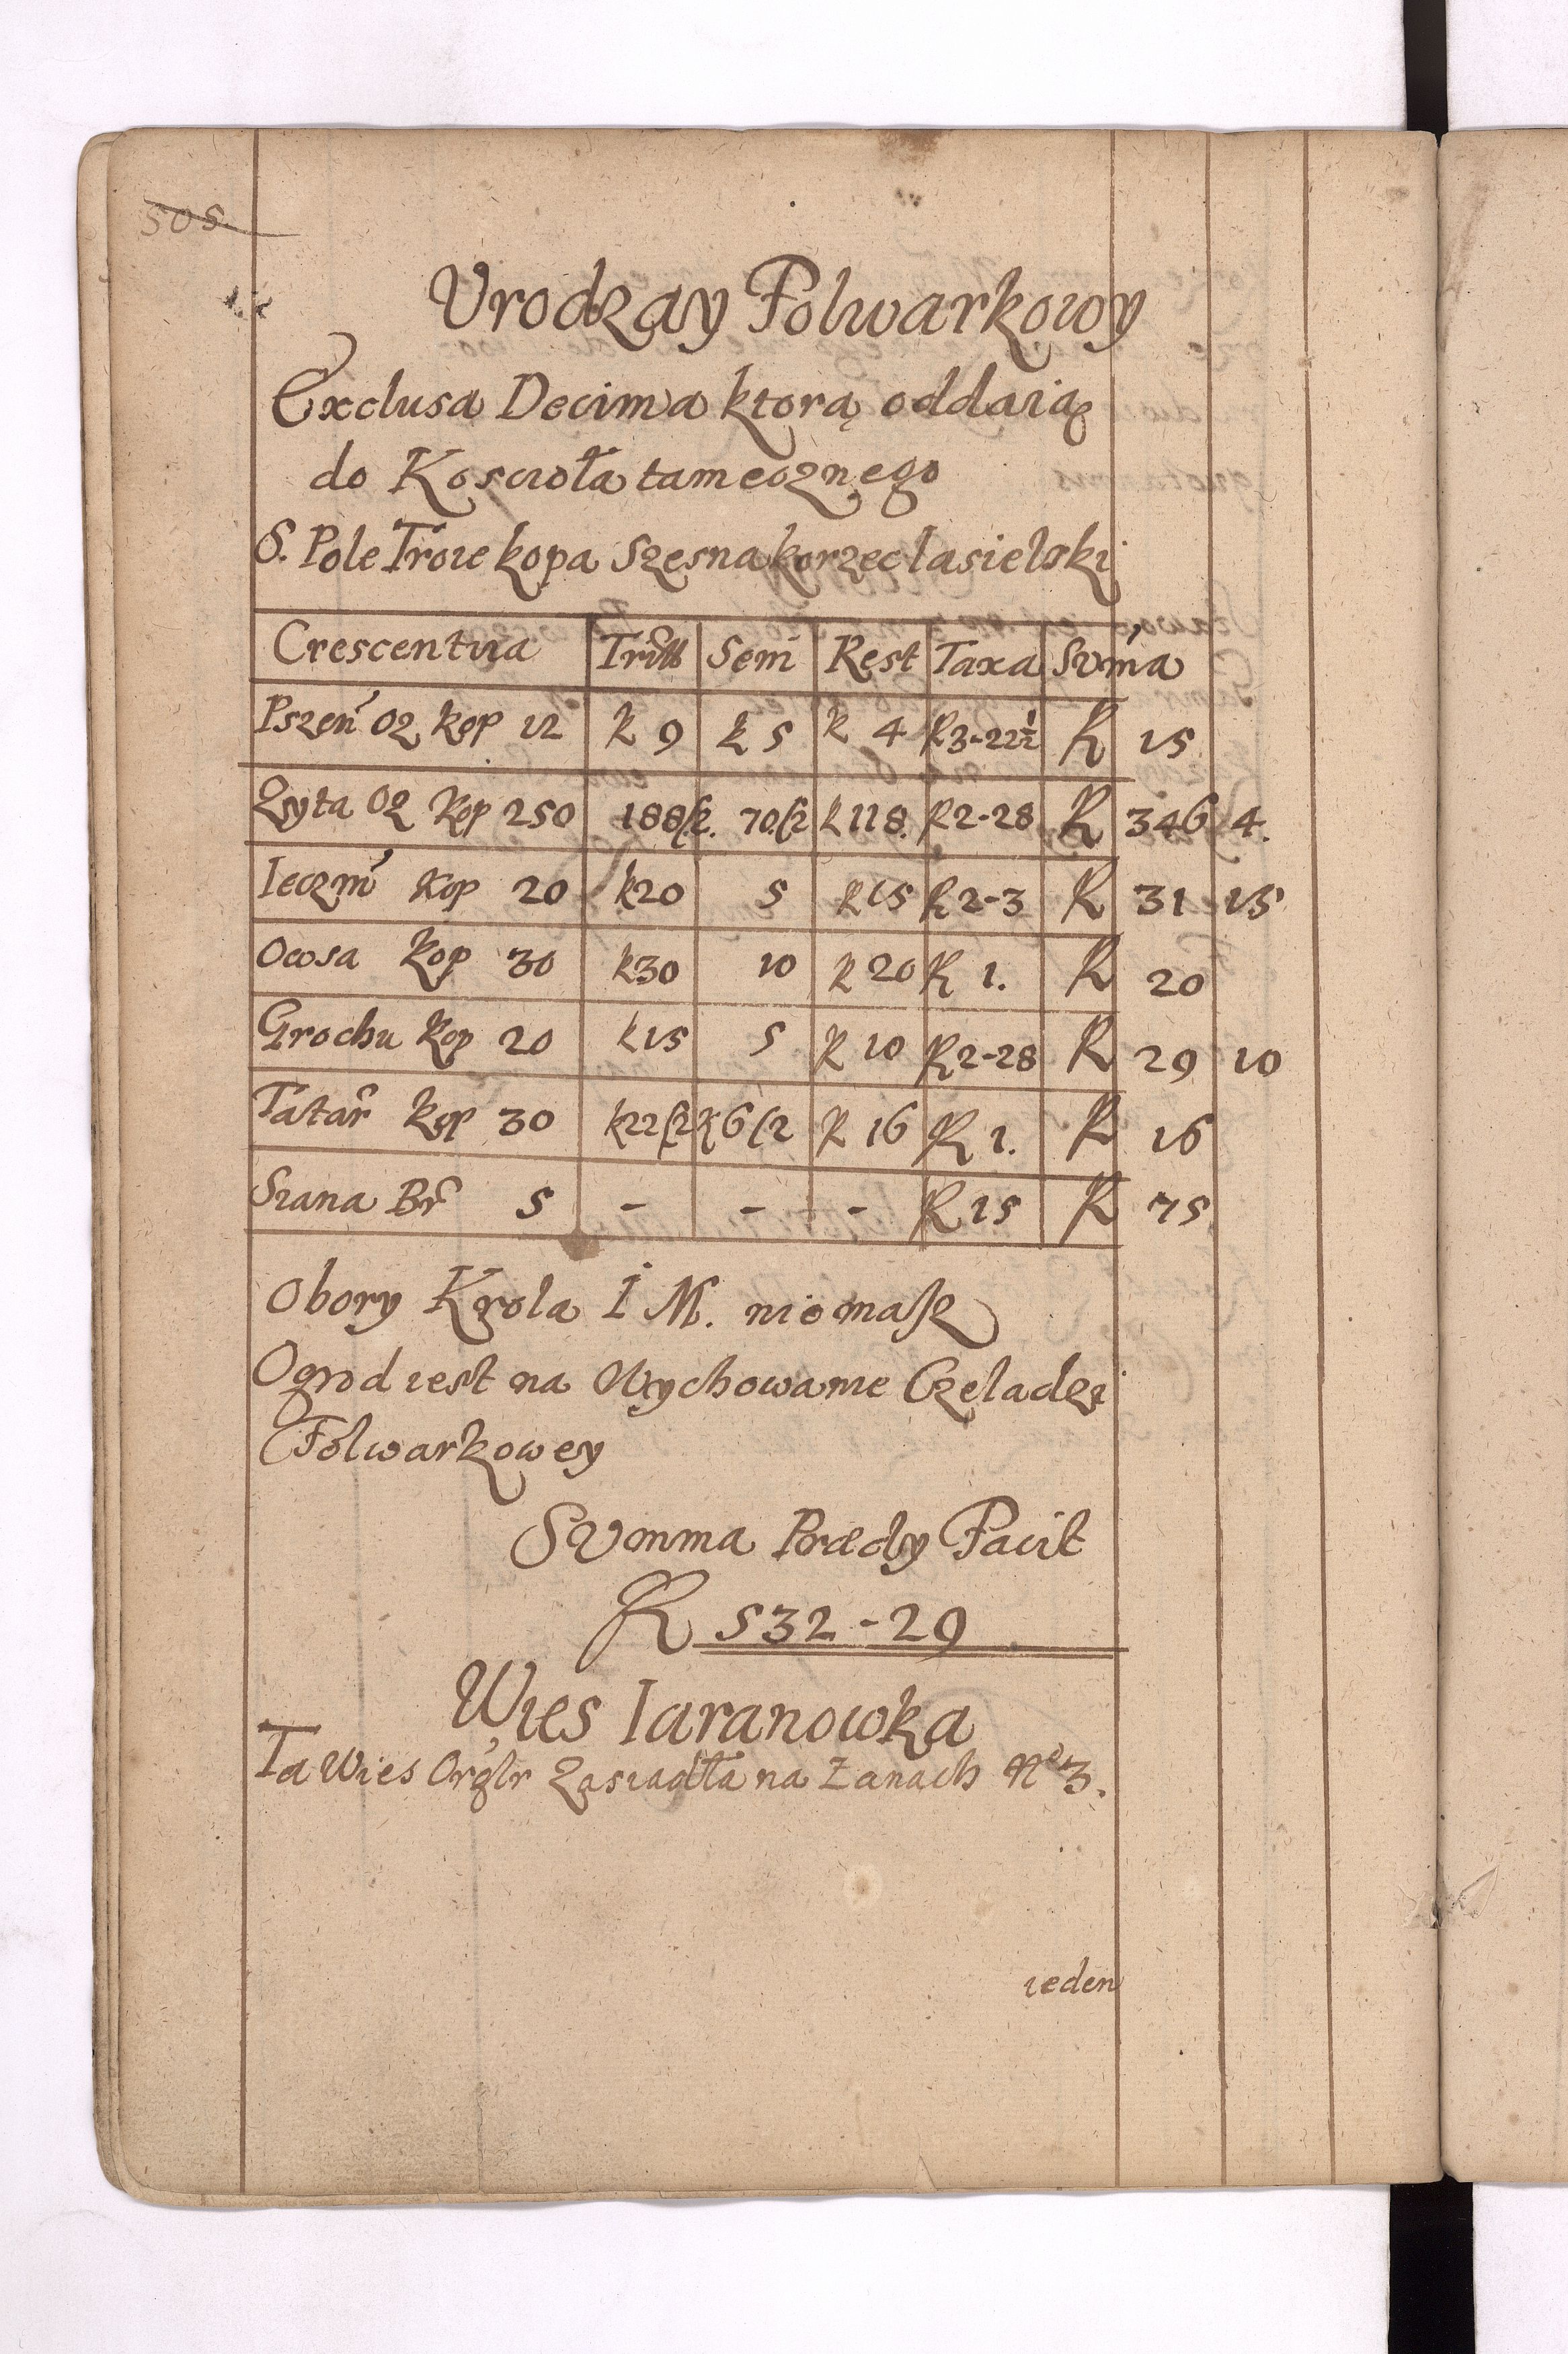 505
Urodzay Folwarkowy
Exclusa Decima ktorą oddaią
do Koscioła tamecznego
S. Pole Troie kopa Szesna korzec Iasielski
Crescentia Tritt Sem Rest Taxa Sum̃a
Pszeń Oz kop 12 k 9 k 5 k 4 R3-22½ R 15
Zyta Oz kop 250 188/2. 70/2 k 118. R2-28 R 346 4.
Ieczm̃ kop 20 k20 5 k15 R2-3 R 31 15
Owsa kop 30 k30 10 k 20 R 1. R 20
Grochu kop 20 k15 5 k 10 R2-28 R 29 10
Tatar̃ kop 30 k22/2 k6/2 k 16 R 1. R 16
Siana Br̃ 5 - - - R 15 R 75
Obory Krola I M. niemasz
Ogrod iest na Wychowanie Czeladzi
Folwarkowey
Summa Prædy Facit
R 532-29
Wies Iaranowka
Ta Wies Orglr Zasiadła na Łanach No 3.
ieden